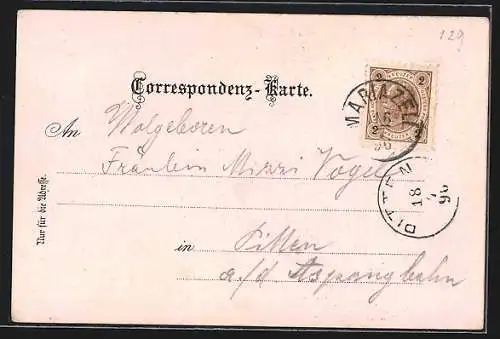 129
Correspondenz-Karte.
2 KREUZER 2
MARIAZELL
An Wolgeboren
Fräulein Mizzi Vogel
PITTEN
18
7
96
in Pitten
a/d Aspangbahn
Nur für die Adresse.